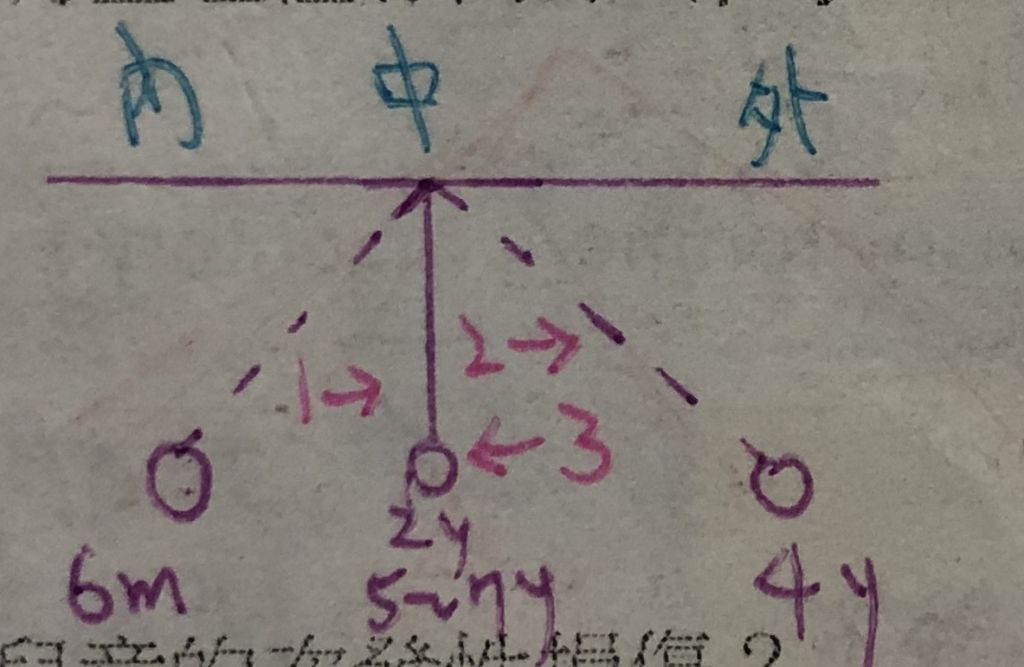 內 中 外
1→ 2→
←3
2y
6m 5~7y 4y